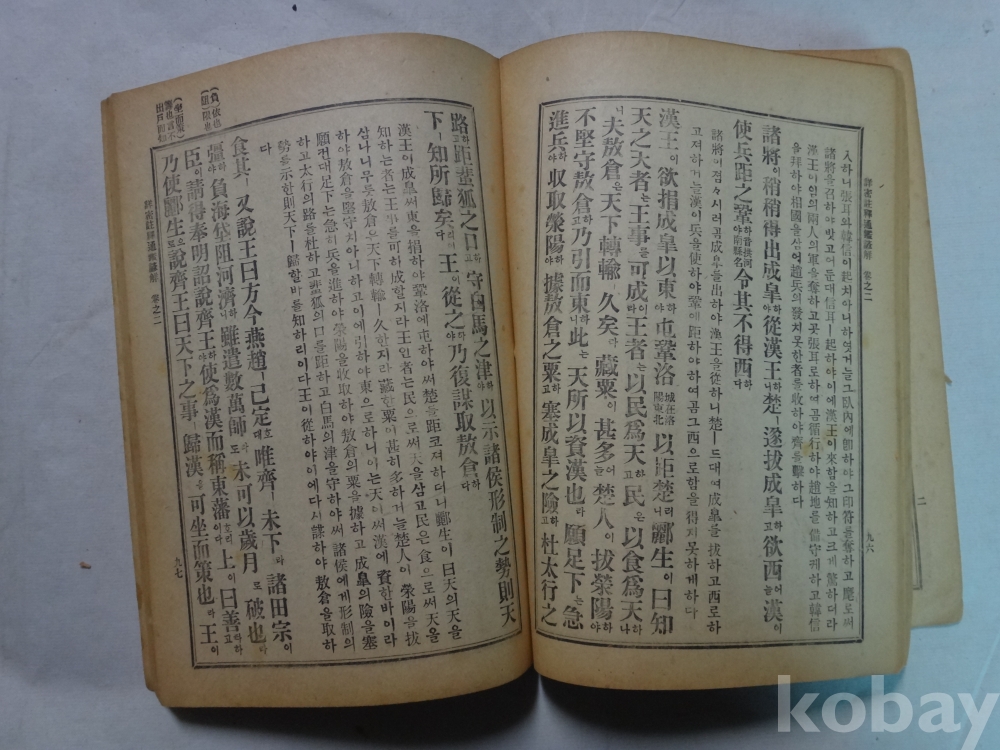 詳密註釋通鑑諺解 卷之二 九六
入하니張耳와韓信이起치아니하엿거늘그臥內에卽하야그印符를奪하고麾로써
諸將을召하야밧고어둔대信耳ㅣ起하야이에漢王이來함을知하고크게驚하더라
漢王이임의兩人의軍을奪하고곳張耳로하여곰循行하야趙地를備守케하고韓信
을拜하야相國을삼어趙兵의發치못한者를收하야齊를擊하다
諸將이稍稍得出成皐하야從漢王하니楚ㅣ遂拔成皐하고欲西어늘漢이
使兵距之鞏하야令其不得西하다
諸將이점々시러곰成皐를出하야漢王을從하니楚ㅣ드대여成皐를拔하고西로하
고져하거늘漢이兵을使하야鞏에距하야하여곰그西으로함을得지못하게하다
漢王이欲捐成皐以東하야屯鞏洛城在洛陽東北以距楚러니酈生이曰知
天之天者는王事를可成이라王者는以民爲天하고民은以食爲天하나
니夫敖倉은天下轉輸ㅣ久矣라藏粟이甚多어늘楚人이拔滎陽하야
不堅守敖倉하고乃引而東하니此는天所以資漢也라願足下는急
進兵하야收取滎陽하야據敖倉之粟하고塞成皐之險하고杜太行之
路하고距蜚狐之口하고守白馬之津하야以示諸侯形制之勢則天
下ㅣ知所歸矣리이다王이從之하야乃復謀取敖倉하다
漢王이成皐써東을捐하야鞏洛에屯하야써楚를距코져하더니酈生이曰天의天을
知하는者는王事를可히成할지라王인者는民으로써天을삼고民은食으로써天을
삼나니무릇敖倉은天下轉輸ㅣ久한지라藏한粟이甚히多하거늘楚人이滎陽을拔
하야敖倉을堅守치아니하고이에引하야東으로하니이는天이써漢에資한바이라
願컨대足下는急히兵을進하야滎陽을收取하야敖倉의粟을據하고成皐의險을塞
하고太行의路를杜하고蜚狐의口를距하고白馬의津을守하야써諸侯에게形制의
勢를示한則天下ㅣ歸할바를知하리이다王이從하야이에다시謀하야敖倉을取하
다
食其ㅣ又說王曰方今燕趙ㅣ已定호대唯齊ㅣ未下라諸田宗이
彊하야負海岱阻河濟하니雖遣數萬師도未可以歲月로破也라
臣이請得奉明詔說齊王하야使爲漢而稱東藩호리이다上이曰善타하고
乃使酈生으로說齊王曰天下之事ㅣ歸漢을可坐而策也라王이
詳密註釋通鑑諺解 卷之二 九七